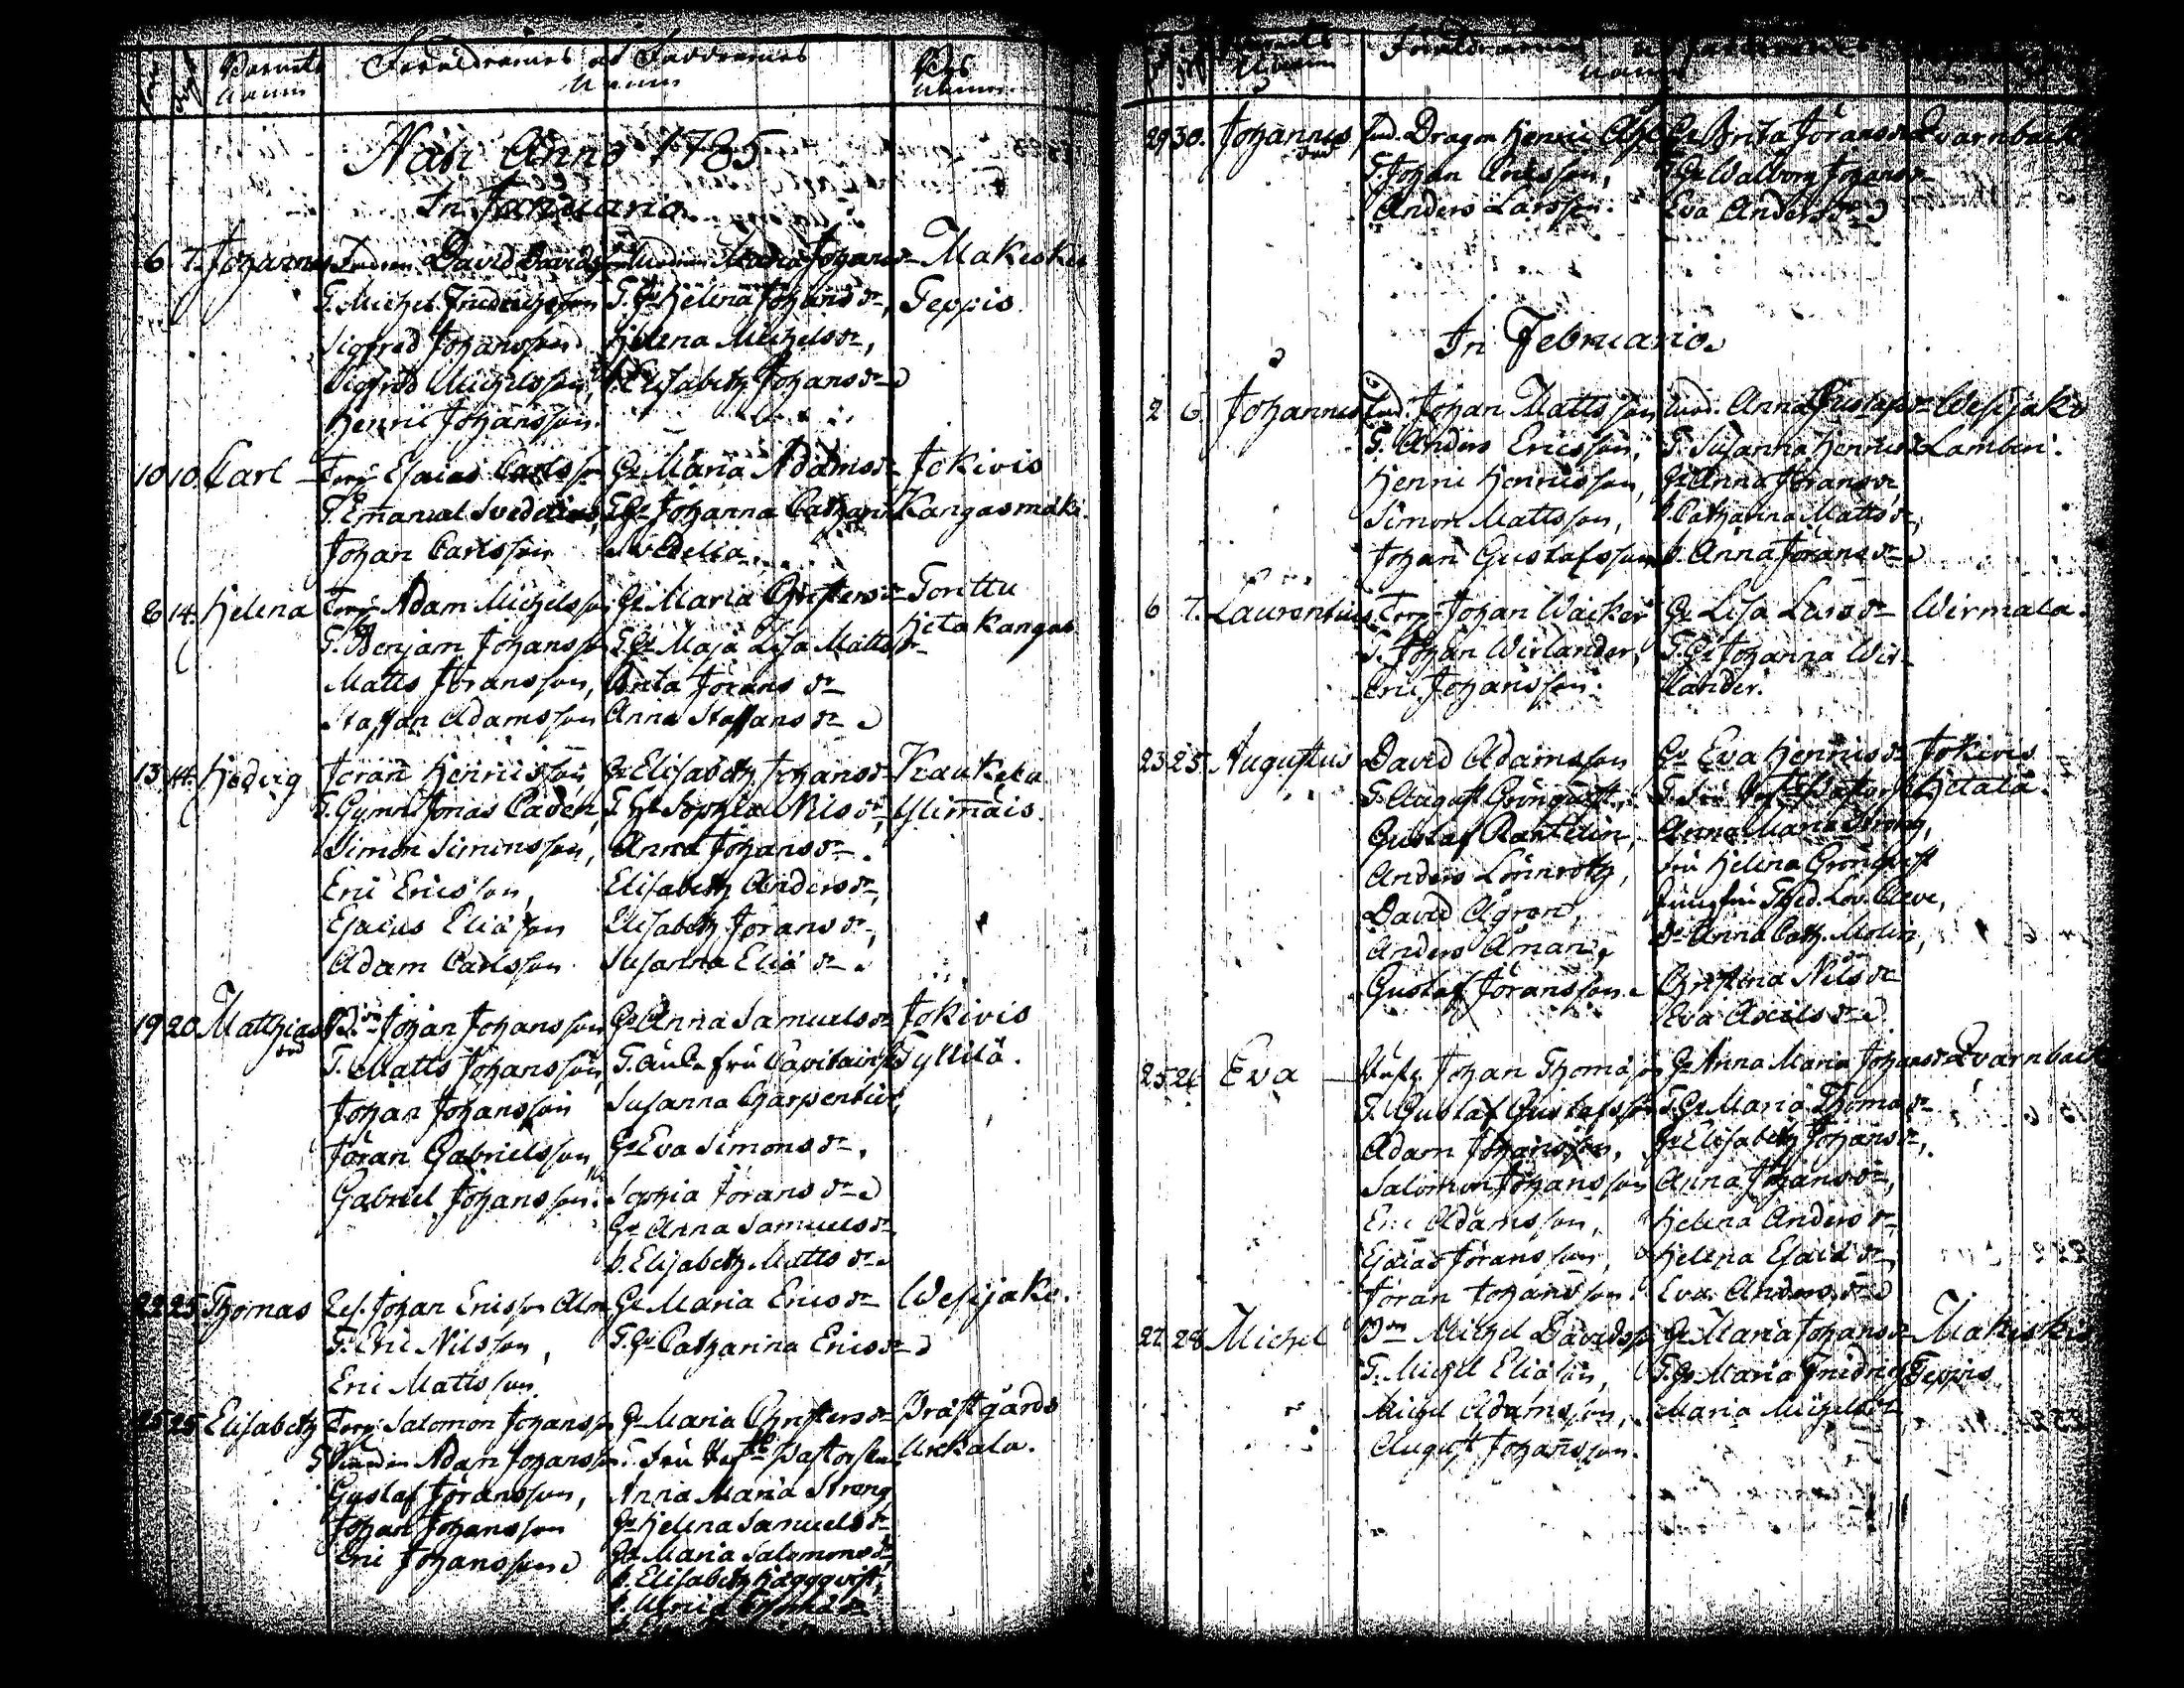 Barnets Föräldrarnes och Faddrarnes Bys
Namn Namn Namn
Nati Anno 1785
In Januario
6 7. Johannes David Davidsson Maria Johansdr Makeskis
T. Michel Fridrichsson T. Hr Helena Johansdr, Seppis
Sigfred Johansson Helena Michelsdr,
Sigfrid Michelsson, p. Elisabeth Johansdr
Henric Johansson.
10 10 Carl Torp. Esaias Carlsson Hr Maria Adamsdr Jokivis
T. Emanuel Svedelius, T. Hr Johanna Catharina Kangasmäki.
Johan Carlsson Svedelia.
8 14. Helena Torp. Adam Michelsson Hr Maria Christersdr Torittu
T. Benjam Johansson T. Hr Maja Lisa Mattsdr Hetakangas
Matts Jöransson, Brita Jöransdr
Staffan Adamsson Anna Staffansdr
13 14. Hedvig Jöran Henricsson Hr Elisabeth Johansdr Kaukela
T. Gymn. Jonas Caden, T. Hr Sophia Nilsdr, Ylimäis.
Simon Simonsson, Anna Johansdr.
Eric Ericsson, Elisabeth Andersdr,
Esaias Eliäson Elisabeth Jöransdr,
Adam Carlsson Susanna Eliädr
19 20 Matthias Bon Johan Johansson Hr Anna Samuelsdr Jokivis
T. Matts Johansson, T. Enke fru Capitainsk Tyllilä.
Johan Johansson Susanna Charpentier,
Jöran Gabrielsson Hr Eva Simonsdr,
Gabriel Johansson. Sophia Jöransdr
Hr Anna Samuelsdr
p. Elisabeth Mattsdr
22 25 Thomas Johan Ericsson Alm Hr Maria Ericsdr Wesijako.
T. Eric Nilsson, T. Hr Catharina Ericsdr
Eric Mattsson
25 25 Elisabeth Torp. Salomon Johansson Hr Maria Christersdr Prästgårds
Adam Johansson T. fru Pastorskan Urckala.
Gustaf Jöransson, Anna Maria Streng
Johan Johansson Hr Helena Samuelsdr
Eric Johansson Hr Maria Salomonsdr
p. Elisabeth Häggqvist,
29 30. Johannes Dragon Henric Hr Brita Jöransdr Qvarnbacka
T. Johan Ericsson, T. Hr Walborg Johansdr
Anders Larsson. Eva Andersdr
In Februario
2 6. Johannes Ind. Johan Mattsson Ind. Anna Gustafsdr Wesijako
T. Anders Ericsson, T. Susanna Henricsdr Lamben.
Henric Henricsson, Hr Anna Jöransdr
Simon Mattsson, p. Catharina Mattsdr,
Johan Gustafsson p. Anna Jöransdr
6 7. Laurentius Torp. Johan Wäcker Hr Lisa Larsdr Wirmala.
T. Johan Wirlander, T. Hr Johanna Wir-
Eric Johansson. lander.
23 25 Augustus David Adamsson Hr Eva Henricsdr Jokivis
T. August Grönqvist, T. fru Pastorsk Hetala.
Gustaf Rantelin, Anna Maria Streng,
Anders Lönnroth, fru Helena Grönqvist
David Ågren, Jungfru Hed. Lov. Cleve,
Anders Åman, Dr Anna Cath. Molin,
Gustaf Jöransson Christina Nilsdr
Eva Axelsdr
25 26 Eva Johan Thomäson Hr Anna Maria Johansdr Qvarnbacka
T. Gustaf Gustafsson T. Hr Maria Thomädr
Adam Johansson, Hr Elisabeth Johansdr,
Salomon Johansson Anna Johansdr,
Eric Adamsson, Helena Andersdr
Esaias Jöransson, Helena Esaiädr
Jöran Johansson Eva Andersdr
27 28 Michel Bon Michel Davidsson Hr Maria Johansdr Makeskis
T. Michel Eliäson, T. Hr Maria Fridrichsdr Seppis
Michel Adamsson, Maria Michelsdr
August Johansson.